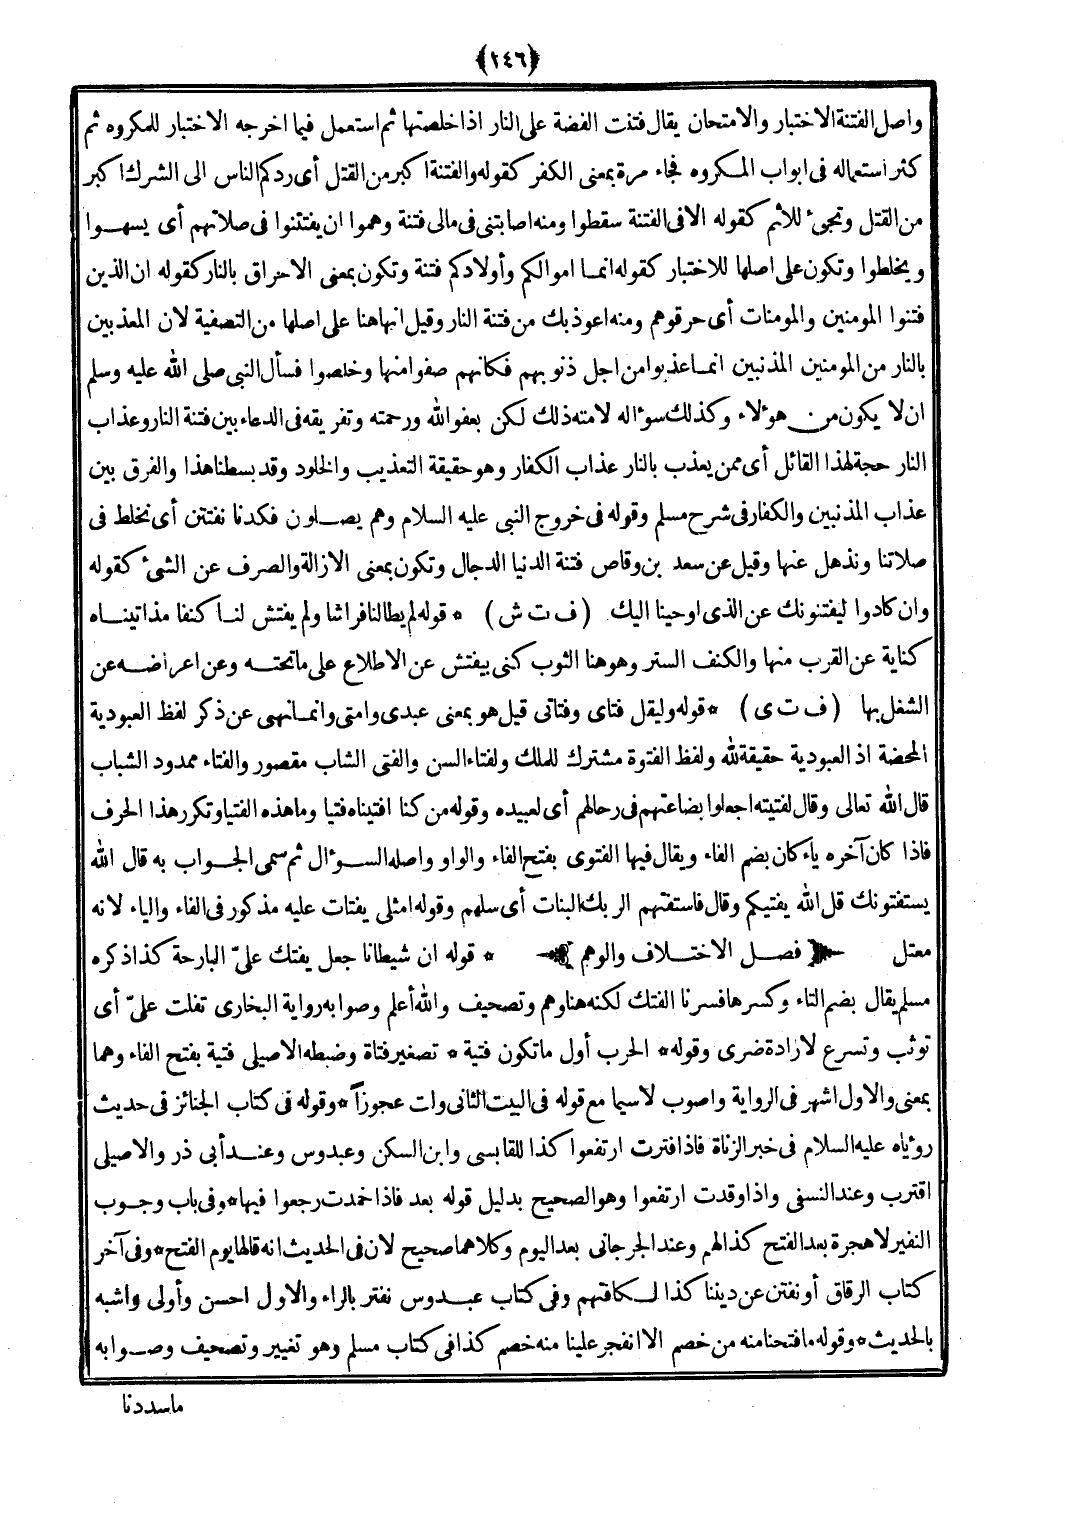 ﴿٢٤٦﴾
واصل الفتنة الاختبار والامتحان يقال فتنت الفضة على النار اذا خلصتها ثم استعمل فيما اخرجه الاختبار للمكروه ثم
كثر استعماله فى ابواب المكروه فجاء مرة بمعنى الكفر كقوله والفتنة اكبر من القتل أى ردكم الناس الى الشرك اكبر
من القتل وتجىء للاثم كقوله الا فى الفتنة سقطوا ومنه اصابتنى فى مالى فتنة وهموا ان يفتتنوا فى صلاتهم أى يسهوا
ويخلطوا وتكون على اصلها للاختبار كقوله انما اموالكم وأولادكم فتنة وتكون بمعنى الاحراق بالنار كقوله ان الذين
فتنوا المومنين والمومنات أى حرقوهم ومنه اعوذ بك من فتنة النار وقيل انها هنا على اصلها من التصفية لان المعذبين
بالنار من المومنين المذنبين انما عذبوا من اجل ذنوبهم فكانهم صفوا منها وخلصوا فسأل النبى صلى الله عليه وسلم
ان لا يكون من هوءلاء وكذلك سوءاله لامته ذلك لكن بعفو الله ورحمته وتفريقه فى الدعاء بين فتنة النار وعذاب
النار حجة لهذا القائل أى ممن يعذب بالنار عذاب الكفار وهو حقيقة التعذيب والخلود وقد بسطنا هذا والفرق بين
عذاب المذنبين والكفار فى شرح مسلم وقوله فى خروج النبى عليه السلام وهم يصلون فكدنا نفتتن أى نخلط فى
صلاتنا ونذهل عنها وقيل عن سعد بن وقاص فتنة الدنيا الدجال وتكون بمعنى الازالة والصرف عن الشىء كقوله
وان كادوا ليفتنونك عن الذى اوحينا اليك (ف ت ش) * قوله لم يطا لنا فراشا ولم يفتش لنا كنفا مذ اتيناه
كناية عن القرب منها والكنف الستر وهو هنا الثوب كنى بيفتش عن الاطلاع على ما تحته وعن اعراضه عن
الشغل بها (ف ت ى) * قوله وليقل فتاى وفتاتى قيل هو بمعنى عبدى وامتى وانما نهى عن ذكر لفظ العبودية
المحضة اذ العبودية حقيقة لله ولفظ الفتوة مشترك للملك ولفتاء السن والفتى الشاب مقصور والفتاء ممدود الشباب
قال الله تعالى وقال لفتيته اجعلوا بضاعتهم فى رحالهم أى لعبيده وقوله من كنا افتيناه فتيا وما هذه الفتيا وتكرر هذا الحرف
فاذا كان آخره ياء كان بضم الفاء ويقال فيها الفتوى بفتح الفاء والواو واصله السوءال ثم سمى الجواب به قال الله
يستفتونك قل الله يفتيكم وقال فاستفتهم الربك البنات أى سلهم وقوله امثلى يفتات عليه مذكور فى الفاء والياء لانه
معتل ﴿فصل الاختلاف والوهم﴾ * قوله ان شيطانا جعل يفتك علىّ البارحة كذا ذكره
مسلم يقال بضم التاء وكسرها فسرنا الفتك لكنه هنا وهم وتصحيف والله أعلم وصوابه رواية البخارى تفلت علىّ أى
توثب وتسرع لارادة ضرى وقوله* الحرب أول ما تكون فتية * تصغير فتاة وضبطه الاصيلى فتية بفتح الفاء وهما
بمعنى والاول اشهر فى الرواية واصوب لاسيما مع قوله فى البيت الثانى ولت عجوزاً* وقوله فى كتاب الجنائز فى حديث
روءياه عليه السلام فى خبر الزناة فاذا فترت ارتفعوا كذا للقابسى وابن السكن وعبدوس وعند أبى ذر والاصيلى
اقترب وعند النسفى واذا وقدت ارتفعوا وهو الصحيح بدليل قوله بعد فاذا خمدت رجعوا فيها* وفى باب وجوب
النفير لا هجرة بعد الفتح كذا لهم وعند الجرجانى بعد اليوم وكلاهما صحيح لان فى الحديث انه قالها يوم الفتح* وفى آخر
كتاب الرقاق أو نفتن عن ديننا كذا لكافتهم وفى كتاب عبدوس نفتر بالراء والاول احسن وأولى واشبه
بالحديث* وقوله ما فتحنا منه من خصم الا انفجر علينا منه خصم كذا فى كتاب مسلم وهو تغيير وتصحيف وصوابه
ما سددنا